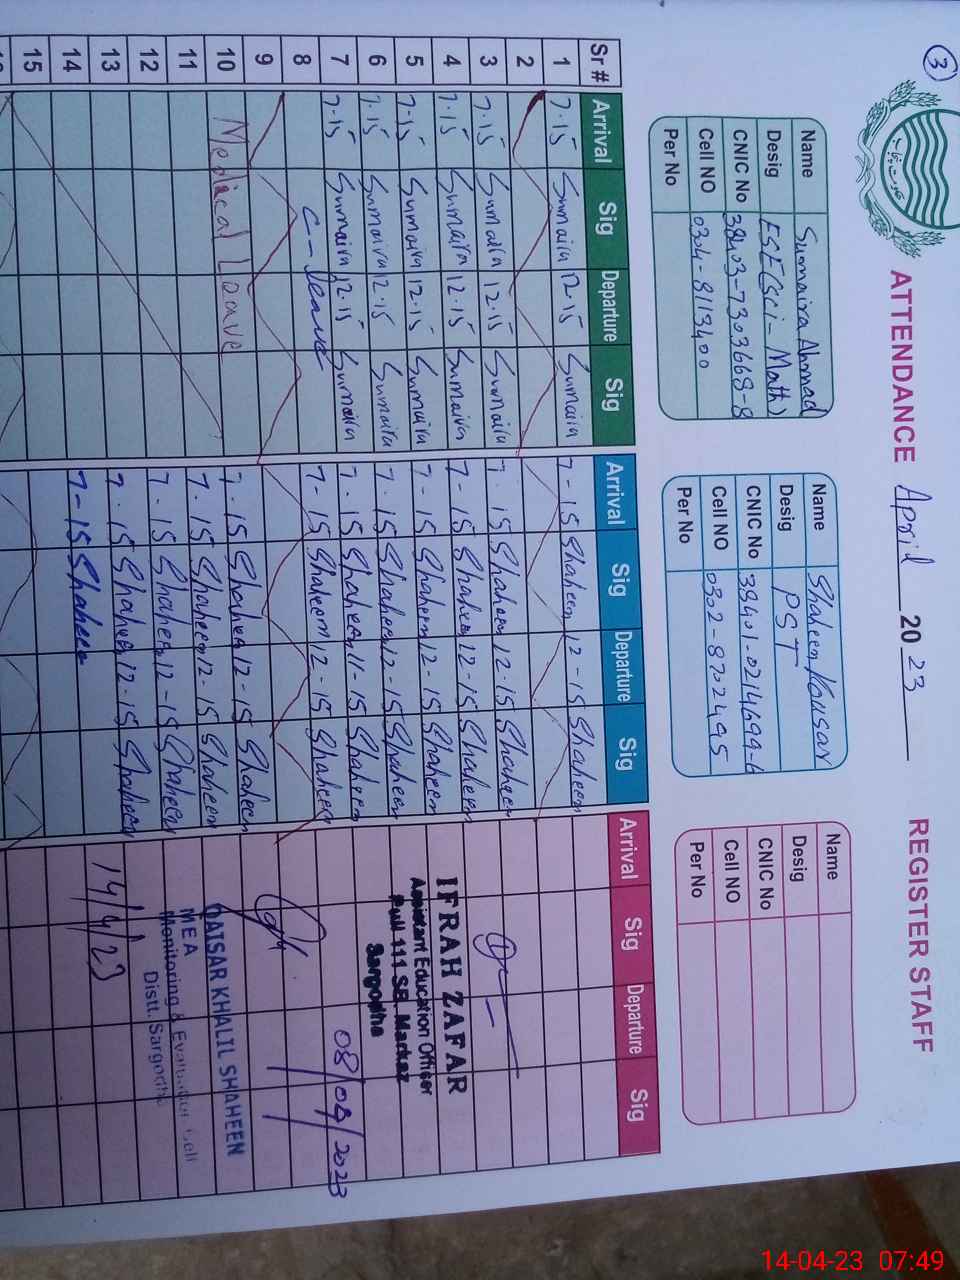 3
ATTENDANCE April 2023 REGISTER STAFF
Name Sumaira Ahmad
Desig ESE(Sci-Math)
CNIC No 38403-7303668-8
Cell NO 0304-8113400
Per No
Name Shaheen Kousar
Desig PST
CNIC No 38401-0214699-6
Cell NO 0302-8702495
Per No
Name
Desig
CNIC No
Cell NO
Per No
Sr # Arrival Sig Departure Sig Arrival Sig Departure Sig Arrival Sig Departure Sig
1 7.15 Sumaira 12.15 Sumaira 7-15 Shaheen 12-15 Shaheen
2
3 7.15 Sumaira 12.15 Sumaira 7.15 Shaheen 12.15 Shaheen
4 7.15 Sumaira 12.15 Sumaira 7-15 Shaheen 12-15 Shaheen
5 7-15 Sumaira 12.15 Sumaira 7-15 Shaheen 12-15 Shaheen
6 7.15 Sumaira 12.15 Sumaira 7.15 Shaheen 12-15 Shaheen
7 7-15 Sumaira 12.15 Sumaira 7.15 Shaheen 11-15 Shaheen
8 C-leave 7-15 Shaheen 12-15 Shaheen
9
10 Medical Leave 7.15 Shaheen 12-15 Shaheen
11 7.15 Shaheen 12.15 Shaheen
12 7.15 Shaheen 12-15 Shaheen
13 7.15 Shaheen 12.15 Shaheen
14 7-15 Shaheen
15
IFRAH ZAFAR
Assistant Education Officer
111 SB. Markaz
Sargodha
08/04/2023
QAISAR KHALIL SHAHEEN
MEA
Monitoring & Evaluation Cell
Distt. Sargodha
14/4/23
14-04-23 07:49